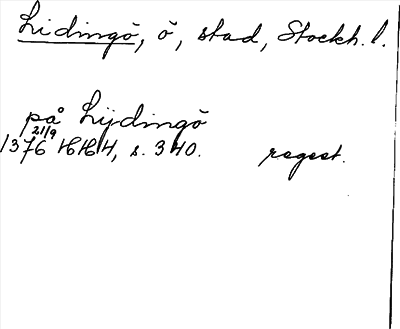 Lidingö, ö, stad, Stockh. l.
på Lijdingö
1376 21/9 HH 4, s. 340. regest.